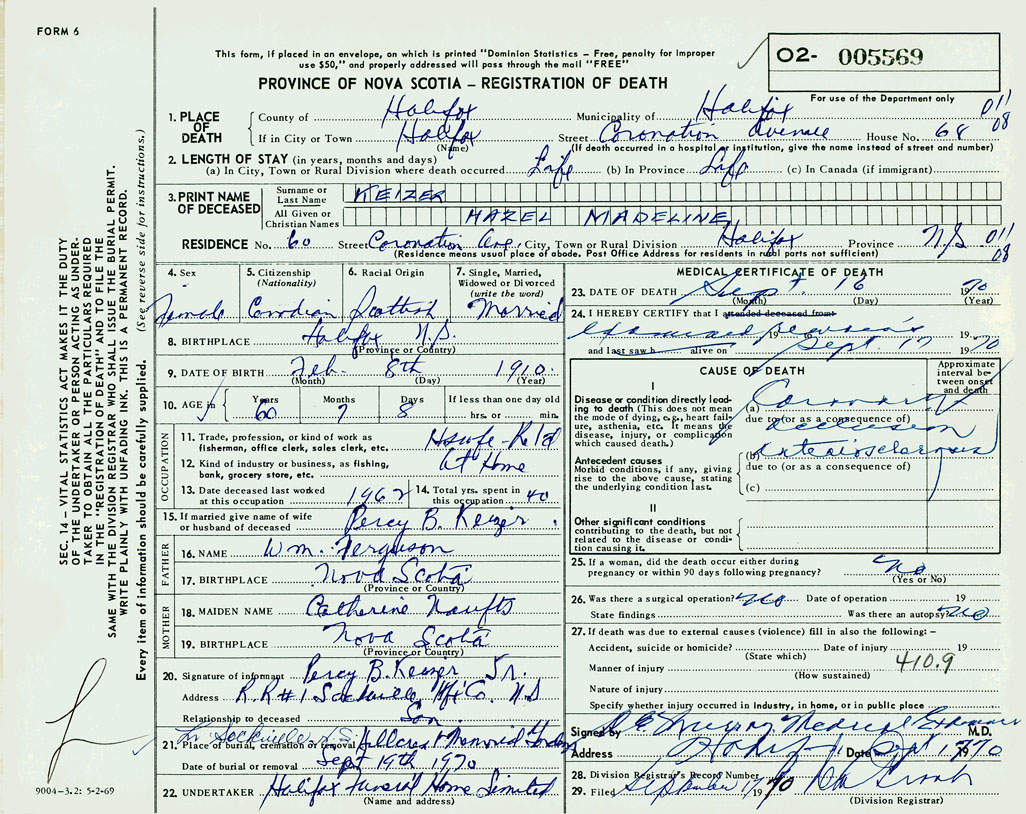 FORM 6
This form, if placed in an envelope, on which is printed "Dominion Statistics – Free, penalty for improper
use $50," and properly addressed will pass through the mail "FREE"
02- 005569
For use of the Department only
PROVINCE OF NOVA SCOTIA – REGISTRATION OF DEATH
011
08
1. PLACE OF DEATH
County of Halifax Municipality of Halifax
If in City or Town Halifax Street Coronation Avenue House No. 68
(Name) (If death occurred in a hospital or institution, give the name instead of street and number)
2. LENGTH OF STAY (in years, months and days)
(a) In City, Town or Rural Division where death occurred Life (b) In Province Life (c) In Canada (if immigrant)
3. PRINT NAME OF DECEASED
Surname or Last Name KEIZER
All Given or Christian Names HAZEL MADELINE
RESIDENCE No. 60 Street Coronation Ave, City, Town or Rural Division Halifax Province N.S 011
08
(Residence means usual place of abode. Post Office Address for residents in rural parts not sufficient)
4. Sex Female
5. Citizenship (Nationality) Canadian
6. Racial Origin Scottish
7. Single, Married, Widowed or Divorced (write the word) Married
8. BIRTHPLACE Halifax N.S.
(Province or Country)
9. DATE OF BIRTH Feb. 8th 1910.
(Month) (Day) (Year)
10. AGE Years 60 Months 7 Days 8 If less than one day old hrs. or min.
OCCUPATION
11. Trade, profession, or kind of work as
fisherman, office clerk, sales clerk, etc. Hswfe-Retd
12. Kind of industry or business, as fishing,
bank, grocery store, etc. At Home
13. Date deceased last worked
at this occupation 1967
14. Total yrs. spent in
this occupation 40
15. If married give name of wife
or husband of deceased Percy B. Keizer.
FATHER
16. NAME Wm. Ferguson
17. BIRTHPLACE Nova Scotia
(Province or Country)
MOTHER
18. MAIDEN NAME Catherine Naufts
19. BIRTHPLACE Nova Scotia
(Province or Country)
20. Signature of informant Percy B. Keizer Jr.
Address R.R #1 Sackville, Hfx Co. N.S
Relationship to deceased Son.
Lr Sackville N.S.
21. Place of burial, cremation or removal Hillcrest Memorial Gardens
Date of burial or removal Sept 19th 1970
22. UNDERTAKER Halifax Funeral Home Limited
(Name and address)
MEDICAL CERTIFICATE OF DEATH
23. DATE OF DEATH Sept. 16 1970
(Month) (Day) (Year)
24. I HEREBY CERTIFY that I attended deceased from
examined remains 19 to 19
and last saw h alive on Sept. 17 1970
CAUSE OF DEATH
Approximate interval between onset and death
I
Disease or condition directly leading to death (This does not mean the mode of dying, e.g., heart failure, asthenia, etc. It means the disease, injury, or complication which caused death.)
(a) Coronary
due to (or as a consequence of)
occlusion
Antecedent causes
Morbid conditions, if any, giving rise to the above cause, stating the underlying condition last.
(b) arteriosclerosis
due to (or as a consequence of)
(c)
II
Other significant conditions
contributing to the death, but not related to the disease or condition causing it.
25. If a woman, did the death occur either during
pregnancy or within 90 days following pregnancy? No
(Yes or No)
26. Was there a surgical operation? No Date of operation 19
State findings Was there an autopsy? No
27. If death was due to external causes (violence) fill in also the following: –
Accident, suicide or homicide? Date of injury 19
(State which) 410.9
Manner of injury
(How sustained)
Nature of injury
Specify whether injury occurred in industry, in home, or in public place
Signed by Murray Medical Examiner M.D.
Address Halifax Date Sept 17 1970
28. Division Registrar's Record Number
29. Filed September 17 1970
(Division Registrar)
SEC. 14 – VITAL STATISTICS ACT MAKES IT THE DUTY
OF THE UNDERTAKER OR PERSON ACTING AS UNDERTAKER TO OBTAIN ALL THE PARTICULARS REQUIRED
IN THE "REGISTRATION OF DEATH" AND TO FILE THE
SAME WITH THE DIVISION REGISTRAR WHO SHALL ISSUE THE BURIAL PERMIT.
WRITE PLAINLY WITH UNFADING INK. THIS IS A PERMANENT RECORD.
Every item of information should be carefully supplied. (See reverse side for instructions.)
9004-3.2: 5-2-69